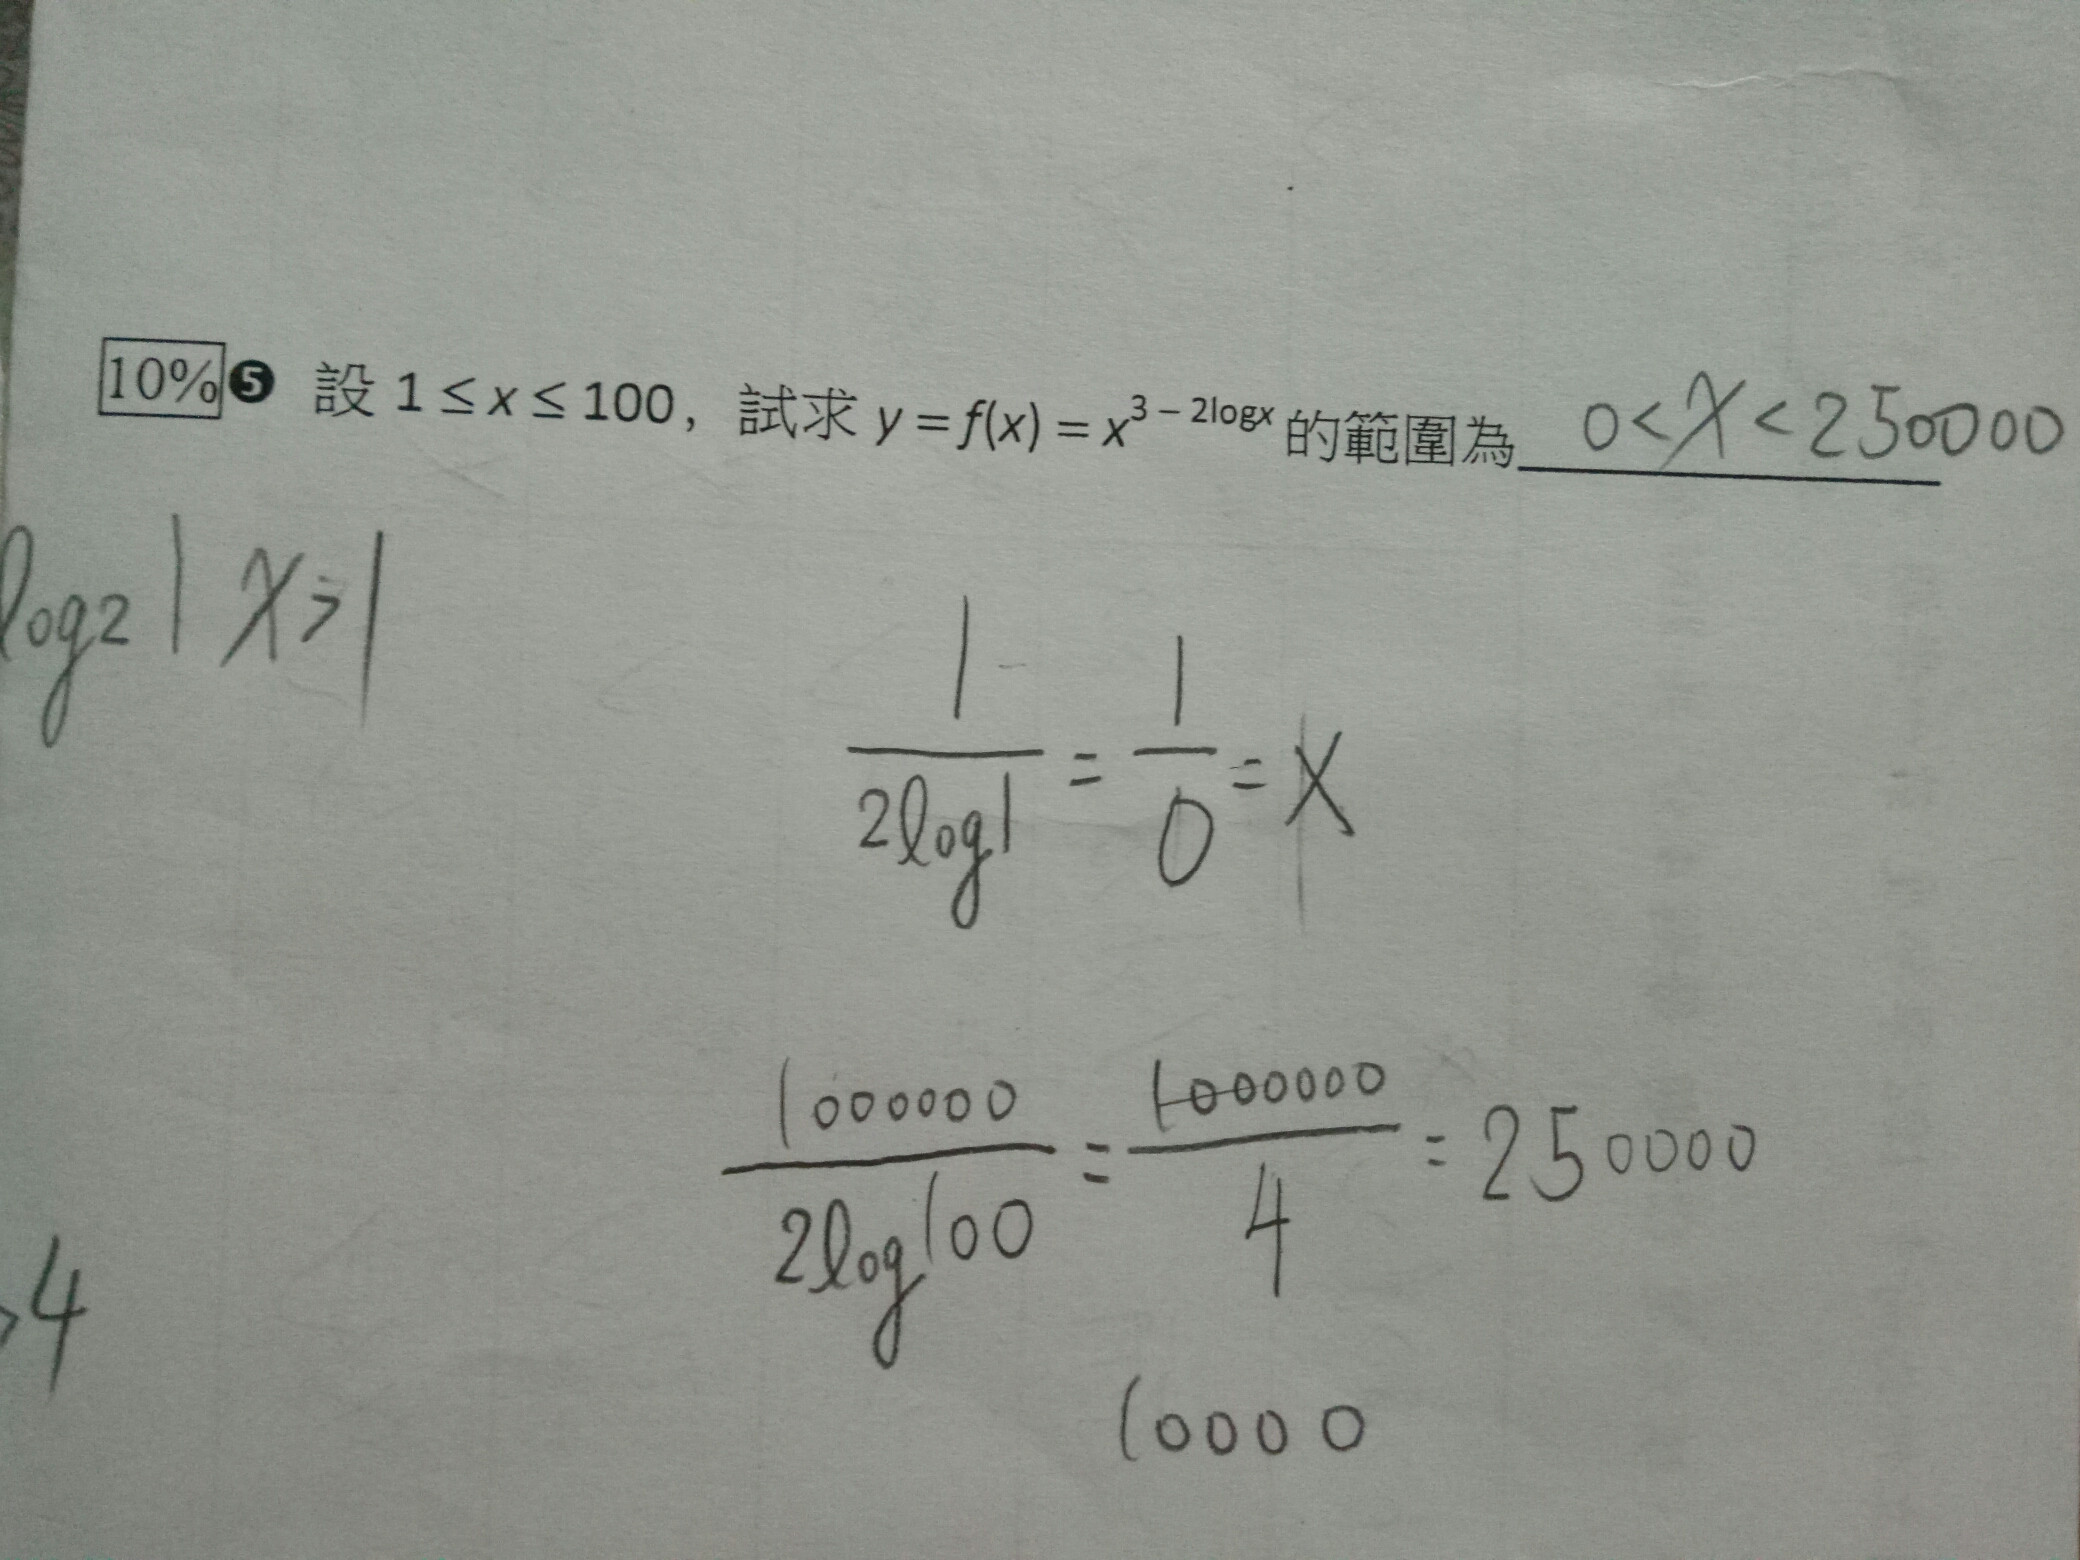 10% ❺ 設 1 ≤ x ≤ 100，試求 y = f(x) = x^{3 − 2logx} 的範圍為 0 < X < 250000
log2 1 X>1
1 / 2log1 = 1 / 0 = X
1000000 / 2log100 = 1000000 / 4 = 250000
>4
10000